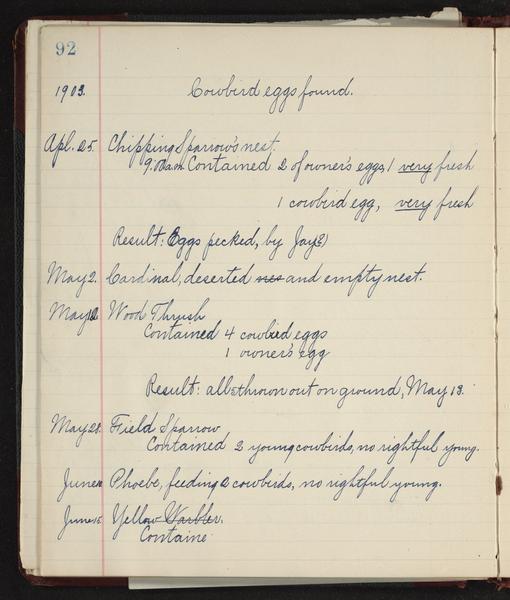 92
1903. Cowbird eggs found.
Apl. 25. Chipping Sparrow's nest.
9:00 a.m. Contained 2 of owner's eggs, 1 very fresh
1 cowbird egg, very fresh
Result: Eggs pecked, by Jay(?)
May 2. Cardinal, deserted nes and empty nest.
May 12 Wood Thrush
Contained 4 cowbird eggs
1 owner's egg
Result: all thrown out on ground, May 13.
May 28. Field Sparrow
Contained 2 young cowbirds, no rightful young.
June Phoebe, feeding 2 cowbirds, no rightful young.
June 15. Yellow Warbler.
Containe